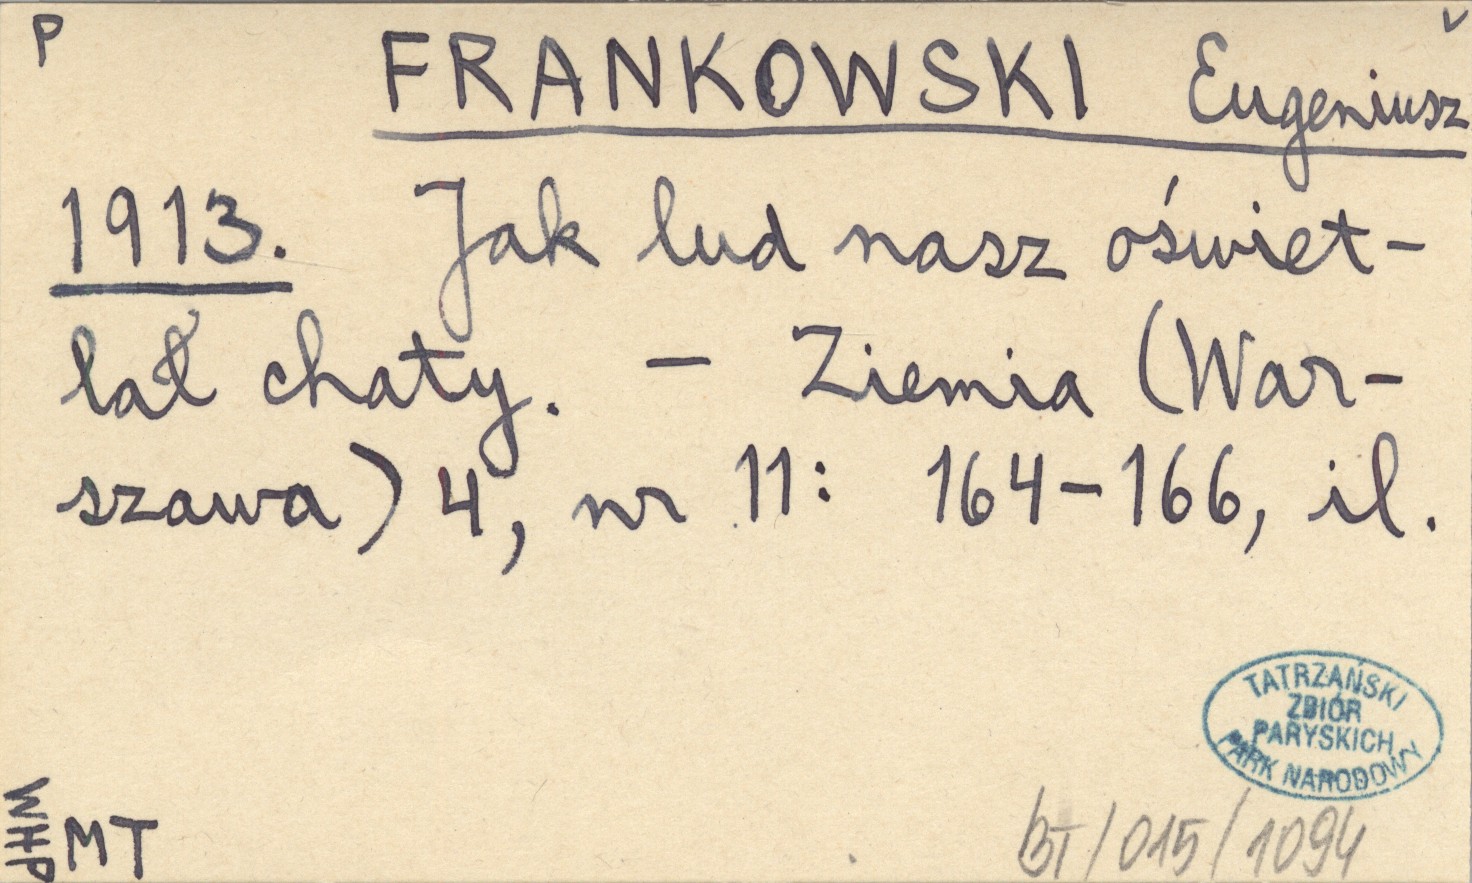 P
v
FRANKOWSKI Eugeniusz
1913. Jak lud nasz oświet-
lał chaty. – Ziemia (War-
szawa) 4, nr 11: 164–166, il.
TATRZAŃSKI
ZBIÓR
PARYSKICH
PARK NARODOWY
WHP
MT
BT/015/1094